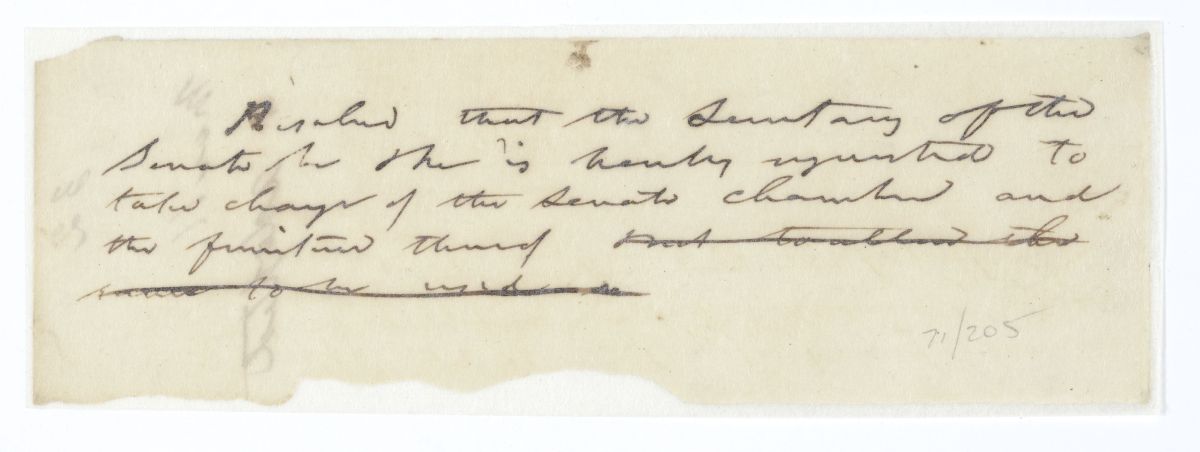 Resolved that the Secretary of the
Senate be & he is hereby requested to
take charge of the Senate chamber and
the furniture thereof not to allow the
same to be used
71/205